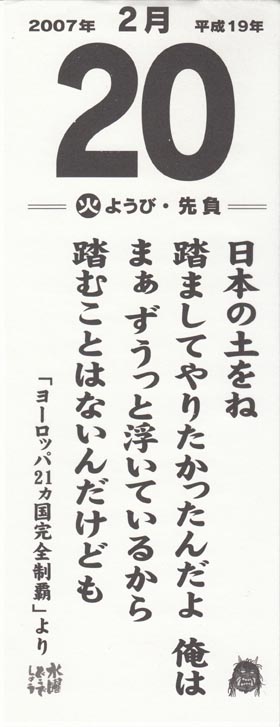 2007年 2月 平成19年
20
火ようび・先負
日本の土をね
踏ましてやりたかったんだよ 俺は
まぁずうっと浮いているから
踏むことはないんだけども
「ヨーロッパ21ヵ国完全制覇」より
水曜
どうで
しょう